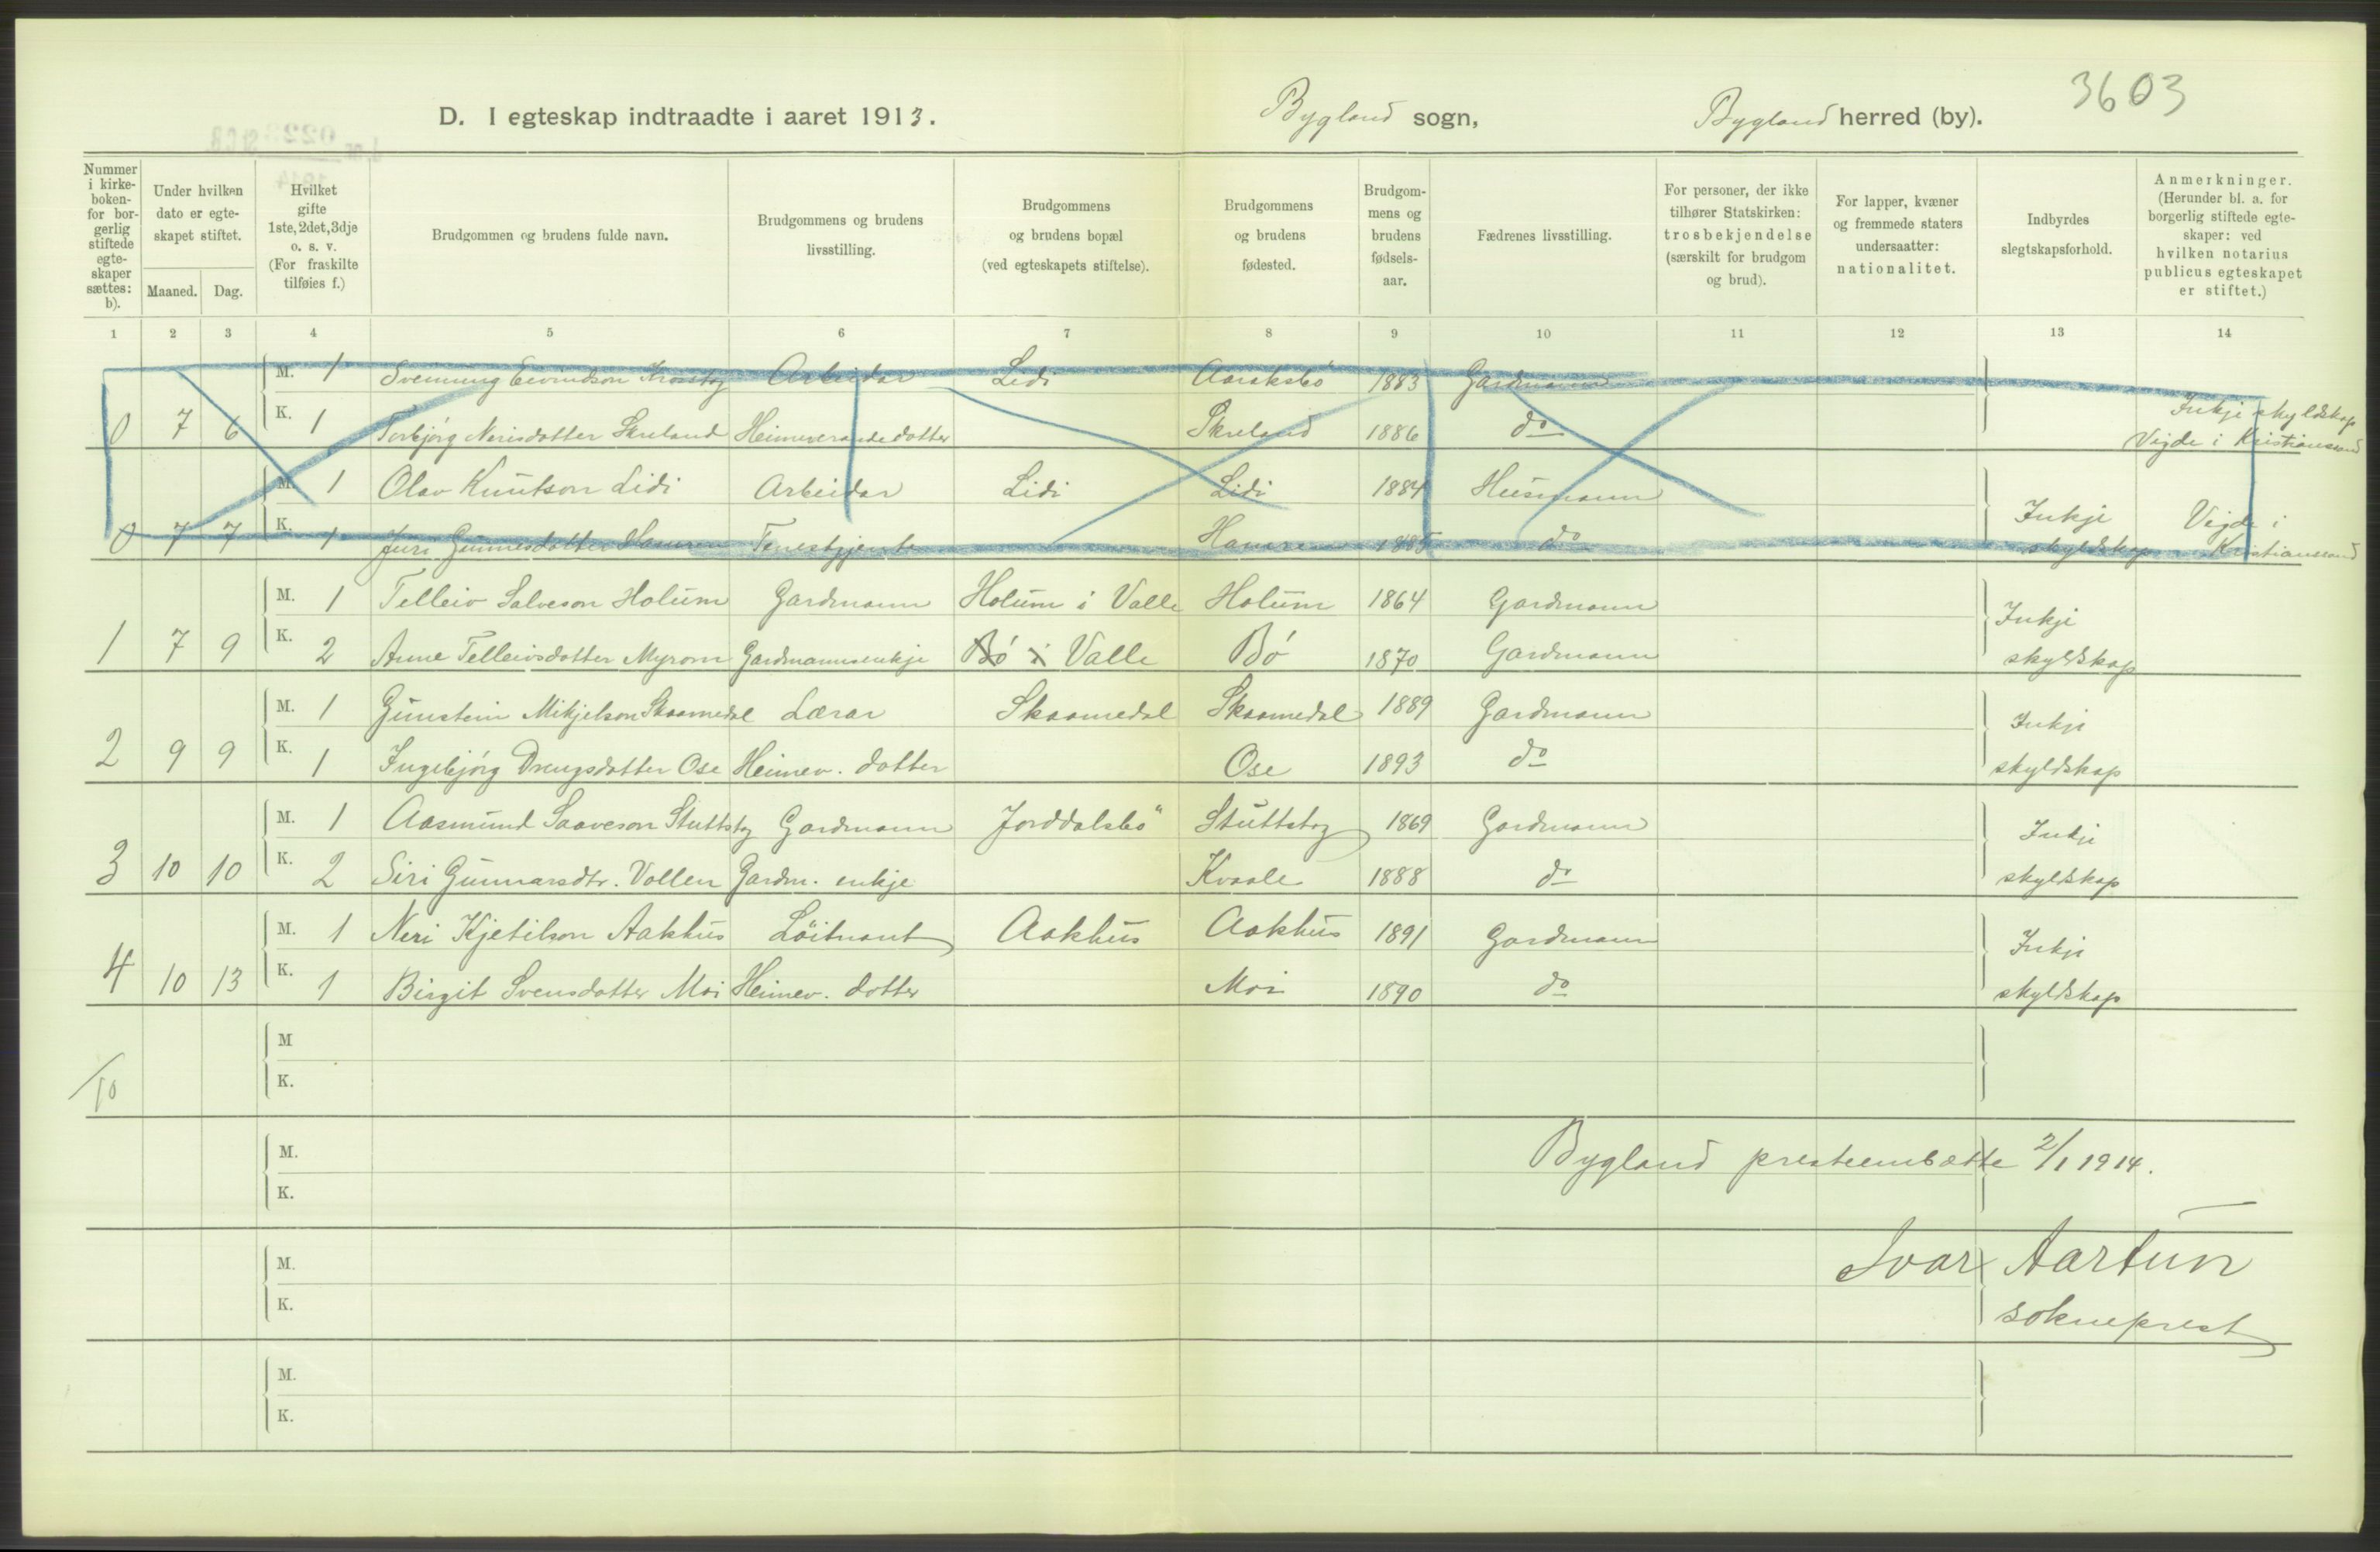 3603
D. I egteskap indtraadte i aaret 1913. Bygland sogn, Bygland herred (by).
Nummer i kirkeboken- for borgerlig stiftede egteskaper sættes: b).
Under hvilken dato er egteskapet stiftet.
Maaned. Dag.
Hvilket gifte 1ste, 2det, 3dje o. s. v. (For fraskilte tilføies f.)
Brudgommen og brudens fulde navn.
Brudgommens og brudens livsstilling.
Brudgommens og brudens bopæl (ved egteskapets stiftelse).
Brudgommens og brudens fødested.
Brudgommens og brudens fødselsaar.
Fædrenes livsstilling.
For personer, der ikke tilhører Statskirken: trosbekjendelse (særskilt for brudgom og brud).
For lapper, kvæner og fremmede staters undersaatter: nationalitet.
Indbyrdes slegtskapsforhold.
Anmerkninger. (Herunder bl. a. for borgerlig stiftede egteskaper: ved hvilken notarius publicus egteskapet er stiftet.)
1 2 3 4 5 6 7 8 9 10 11 12 13 14
M. 1 Svennung Eivindson Arbeidar Lidi Aaraksbö 1883 Gardmann
0 7 6 K. 1 Torbjórg Nerisdotter Skreland Heimeverande dotter Skreland 1886 do Inkje skyldskap
Vigde i Kristianssand
M. 1 Olav Knutson Lidi Arbeidar Lidi Lidi 1884 Husmann
0 7 7 K. 1 Juri Gunnesdotter Hamren Tenestgjenta 1885 do Inkje skyldskap Vigde i Kristianssand
M. 1 Telleiv Salveson Holum Gardmann Holum i Valle Holum 1864 Gardmann
1 7 9 K. 2 Anne Telleivsdotter Myrom Gardmannsenkje Bó i Valle Bó 1870 Gardmann Inkje skyldskap
M. 1 Gunstein Mikjelson Skaamedal Lærar Skaamedal Skaamedal 1889 Gardmann
2 9 9 K. 1 Ingebjórg Drengsdotter Ose Heimev. dotter Ose 1893 do Inkje skyldskap
M. 1 Aasmund Saaveson Stuttstog Gardmann Jorddalsbö Stuttstog 1869 Gardmann
3 10 10 K. 2 Siri Gunnarsdtr. Vollen Gardm. enkje Kvaale 1888 do Inkje skyldskap
M. 1 Neri Kjetilson Aakhus Löitnant Aakhus Aakhus 1891 Gardmann
4 10 13 K. 1 Birgit Svensdotter Moi Heimev. dotter Moi 1890 do Inkje skyldskap
M
/10 K.
M. Bygland presteembætte 2/1 1914.
K.
M. Ivar Aartun
K. sokneprest
M.
K.